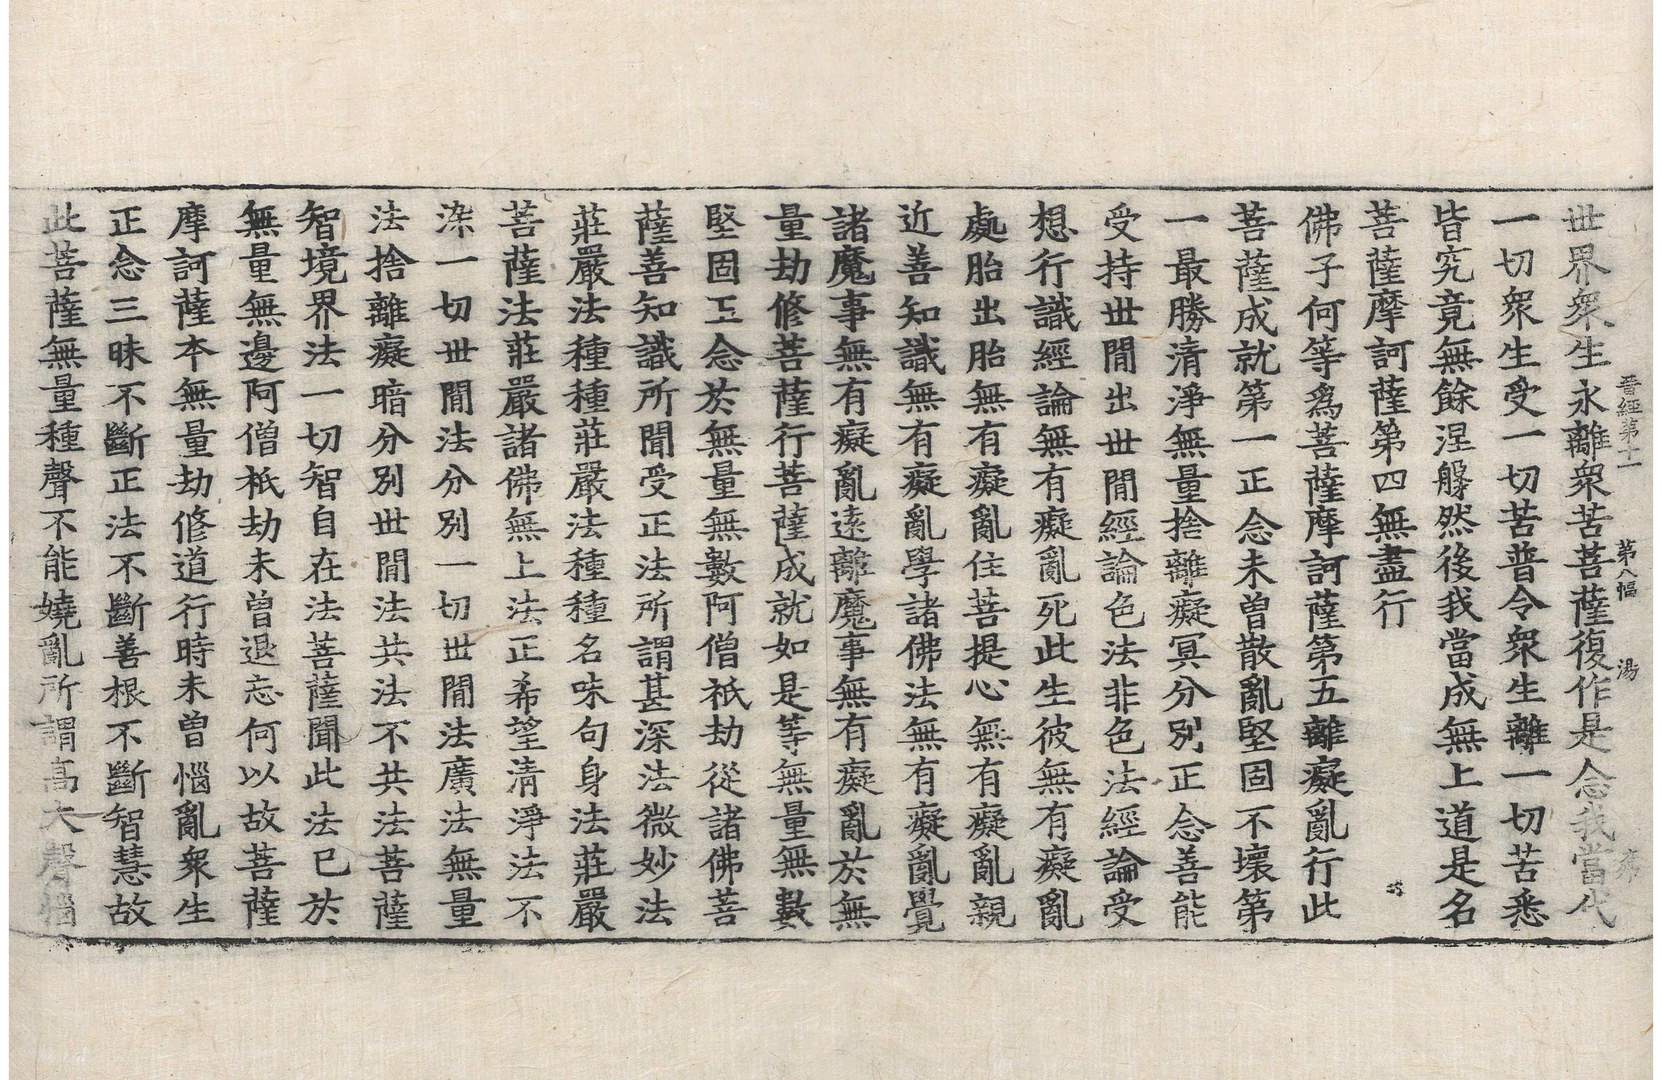 世界衆生永離衆苦菩薩復作是念我當代
晉經第十一 第八幅 湯
一切衆生受一切苦普令衆生離一切苦悉
皆究竟無餘涅槃然後我當成無上道是名
菩薩摩訶薩第四無盡行
佛子何等爲菩薩摩訶薩第五離癡亂行此
菩薩成就第一正念未曽散亂堅固不壞第
一最勝清淨無量捨離癡冥分別正念善能
受持世間出世間經論色法非色法經論受
想行識經論無有癡亂死此生彼無有癡亂
處胎出胎無有癡亂住菩提心無有癡亂親
近善知識無有癡亂學諸佛法無有癡亂覺
諸魔事無有癡亂遠離魔事無有癡亂於無
量劫修菩薩行菩薩成就如是等無量無數
堅固正念於無量無數阿僧祇劫從諸佛菩
薩善知識所聞受正法所謂甚深法微妙法
莊嚴法種種莊嚴法種種名味句身法莊嚴
菩薩法莊嚴諸佛無上法正希望清淨法不
染一切世間法分別一切世間法廣法無量
法捨離癡暗分別世間法共法不共法菩薩
智境界法一切智自在法菩薩聞此法已於
無量無邊阿僧祇劫未曽退忘何以故菩薩
摩訶薩本無量劫修道行時未曽惱亂衆生
正念三昧不斷正法不斷善根不斷智慧故
此菩薩無量種聲不能嬈亂所謂高大聲惱